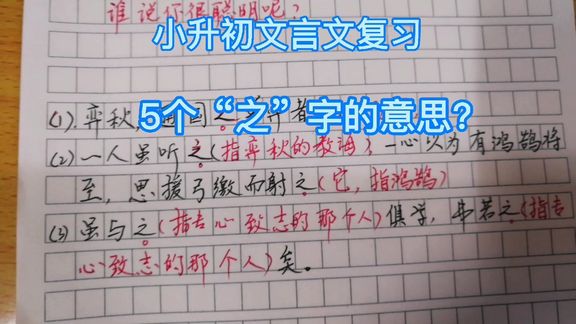 谁说你很聪明呢?
小升初文言文复习
5个“之”字的意思?
(1).弈秋,通国之善弈者
(2)一人虽听之(指弈秋的教诲),一心以为有鸿鹄将
至,思援弓缴而射之(它,指鸿鹄)
(3)虽与之(指专心致志的那个人)俱学,弗若之(指专
心致志的那个人)矣。